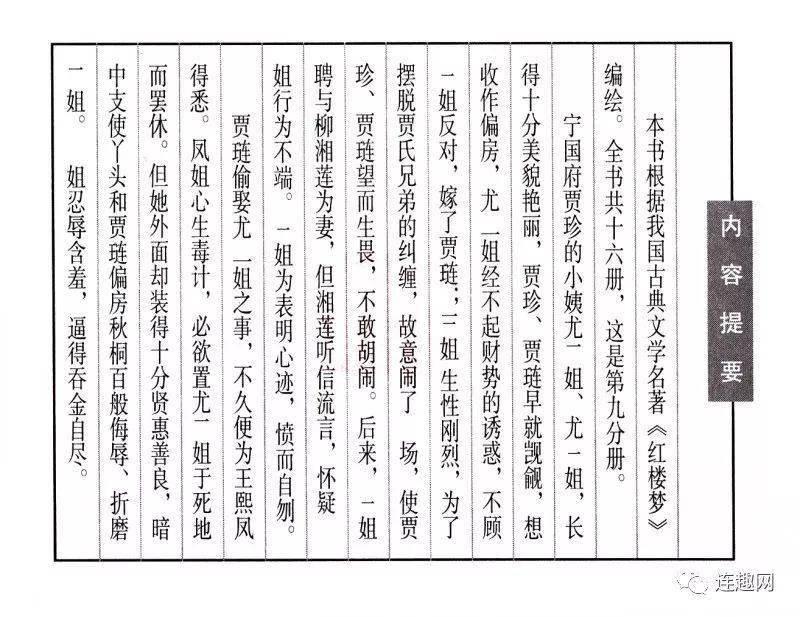 内容提要
本书根据我国古典文学名著《红楼梦》
编绘。全书共十六册，这是第九分册。
宁国府贾珍的小姨尤一姐、尤一姐，长
得十分美貌艳丽，贾珍、贾琏早就觊觎，想
收作偏房，尤一姐经不起财势的诱惑，不顾
一姐反对，嫁了贾琏；三姐生性刚烈，为了
摆脱贾氏兄弟的纠缠，故意闹了 场，使贾
珍、贾琏望而生畏，不敢胡闹。后来，一姐
聘与柳湘莲为妻，但湘莲听信流言，怀疑
姐行为不端。一姐为表明心迹，愤而自刎。
贾琏偷娶尤一姐之事，不久便为王熙凤
得悉。凤姐心生毒计，必欲置尤一姐于死地
而罢休。但她外面却装得十分贤惠善良，暗
中支使丫头和贾琏偏房秋桐百般侮辱、折磨
一姐。 姐忍辱含羞，逼得吞金自尽。
连趣网